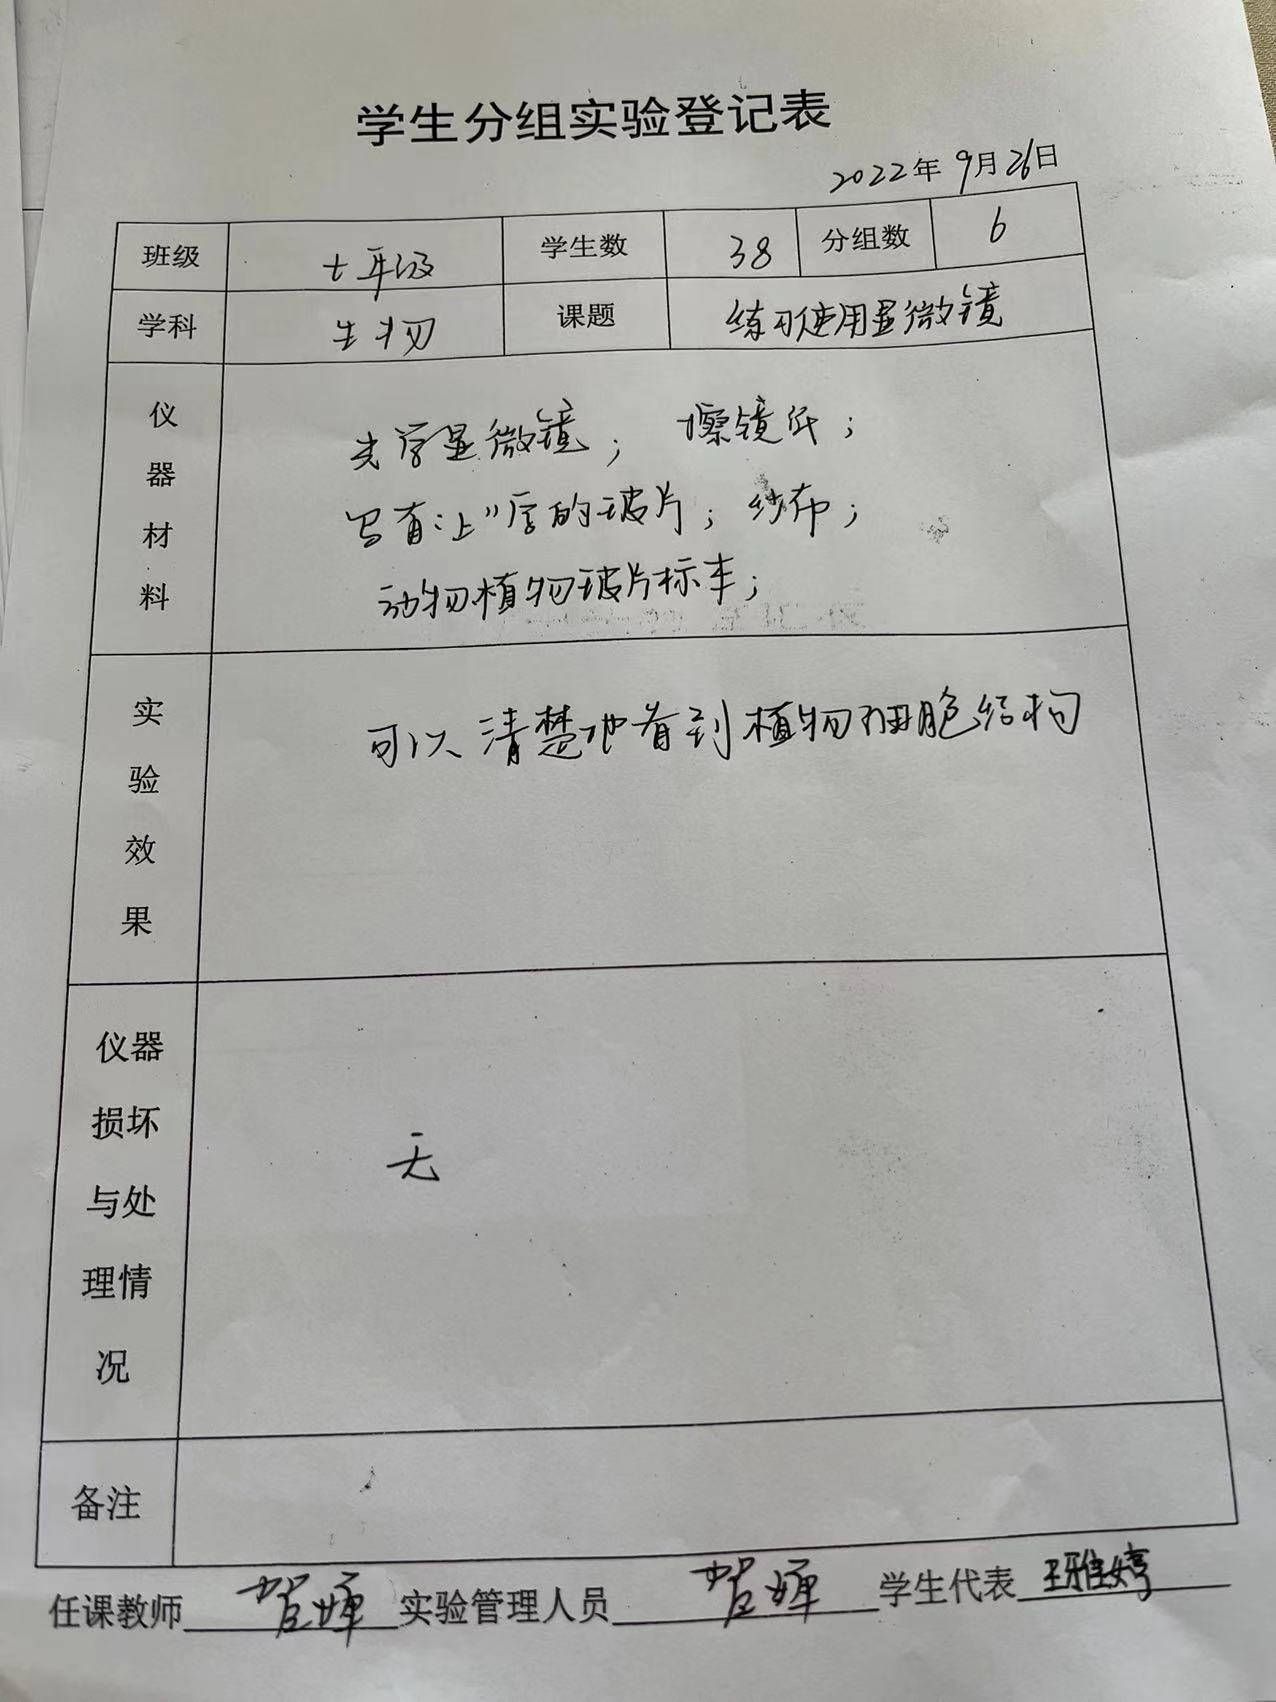 学生分组实验登记表
2022年9月26日
班级 七年级 学生数 38 分组数 6
学科 生物 课题 练习使用显微镜
仪器材料
光学显微镜； 擦镜纸；
写有“上”字的玻片；纱布；
动物植物玻片标本；
实验效果
可以清楚地看到植物细胞结构
仪器损坏与处理情况
无
备注
任课教师 贺婵 实验管理人员 贺婵 学生代表 王雅婷